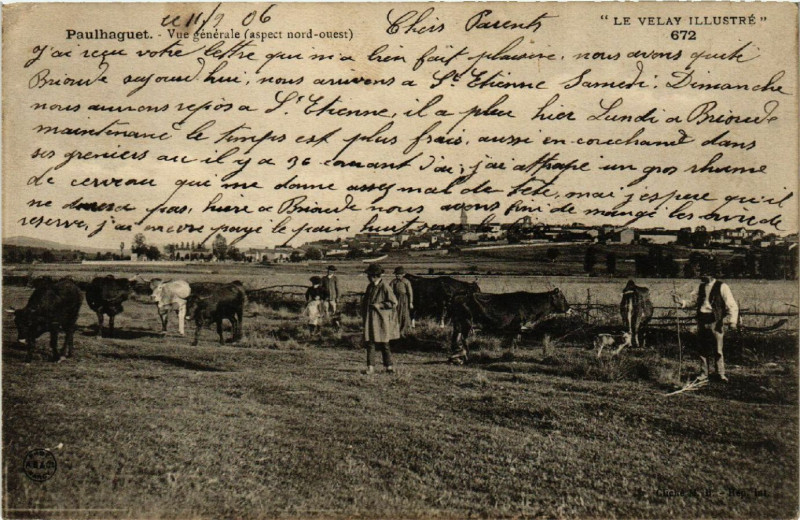 le 11/9 06 Chers Parents
Paulhaguet. - Vue générale (aspect nord-ouest)
" LE VELAY ILLUSTRÉ "
672
J'ai reçu votre lettre qui m'a bien fait plaisire, nous avons quité
Brioude aujourd'hui, nous arrivons a St Etienne Samedi, Dimanche
nous aurons repos a St Etienne, il a pleu hier Lundi a Brioude
maintenant le temps est plus frais, aussi en couchant dans
ses greniers au il y a 36 courant d'air, j'ai attrapé un gros rhume
de cerveau qui me donne assez mal de tête, mai j'espère qu'il
ne durera pas, hière a Brioude nous avons fini de mangé les vivre de
reserve, j'ai encore payé le pain huit sous
Cliché M. B. - Rep. int.